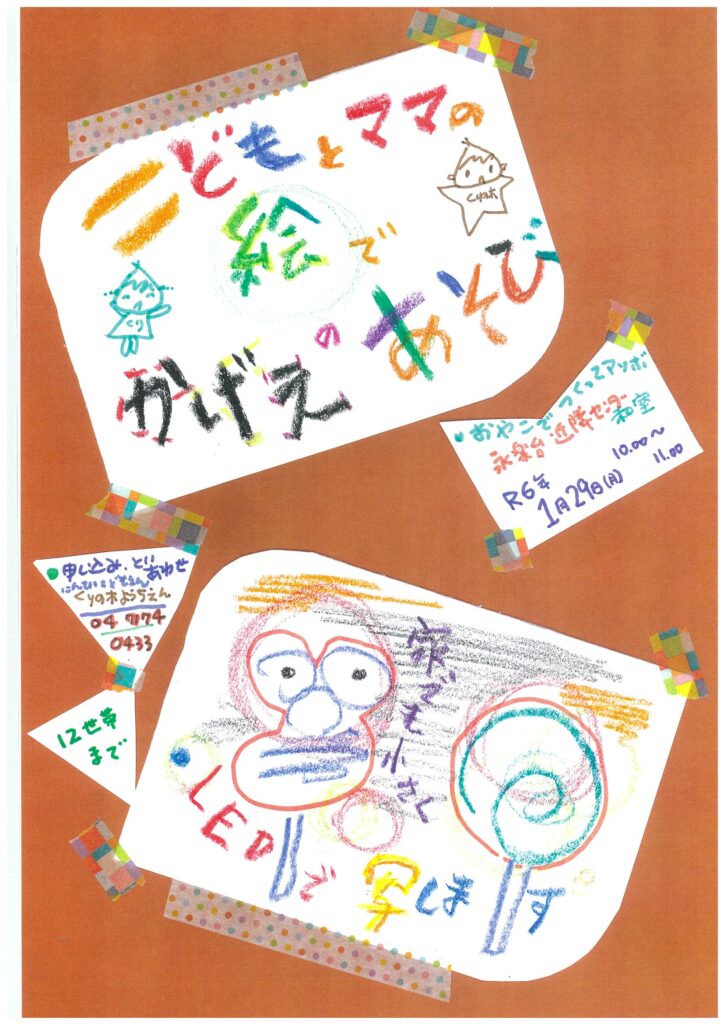 こどもとママの
絵で
かげえのあそび
くりの木
くり
おやこで つくってアソボ
永楽台近隣センター
和室
R6年
1月29日(月)
10.00～
11.00
申し込み.とい
あわせ
にんていこどもえん
くりの木ようちえん
04 7174
0433
12世帯
まで
家でも小さく
LEDで写します